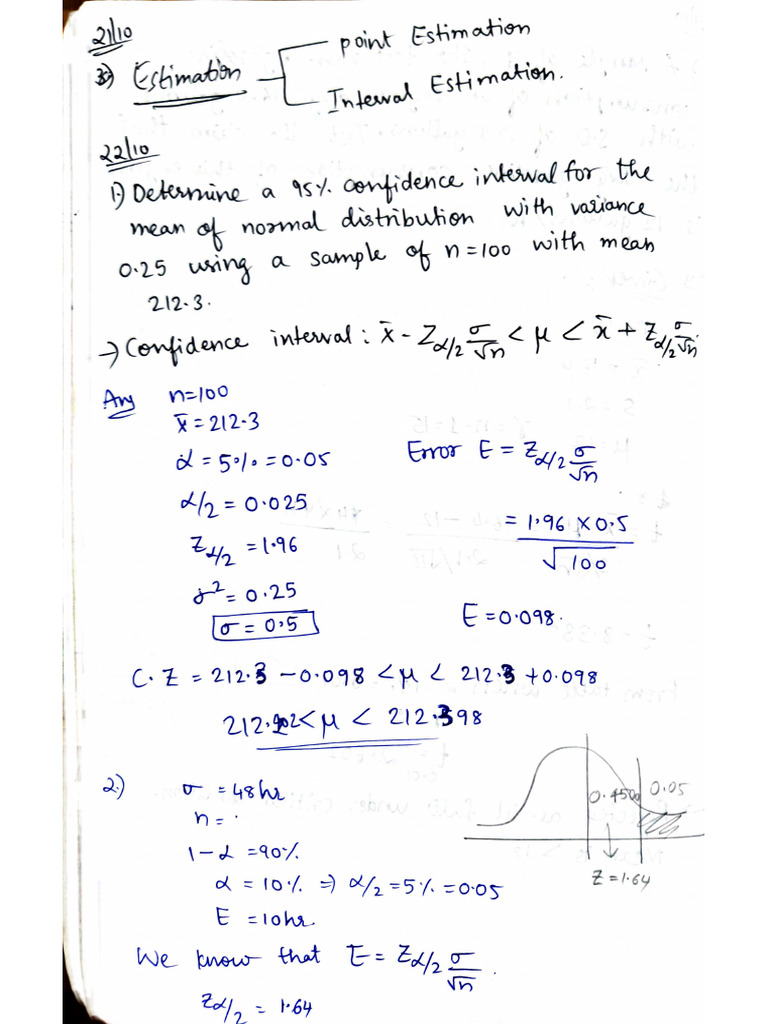 21/10
3) Estimation
point Estimation
Interval Estimation.
22/10
1) Determine a 95% confidence interval for the
mean of normal distribution with variance
0.25 using a sample of n=100 with mean
212.3.
→ Confidence interval : x̄ - Z_{α/2} σ/√n < μ < x̄ + Z_{α/2} σ/√n.
Ans n=100
x̄ = 212.3
α = 5% = 0.05
α/2 = 0.025
Z_{α/2} = 1.96
σ² = 0.25
σ = 0.5
Error E = Z_{α/2} σ/√n
= 1.96 × 0.5 / √100
E = 0.098.
C.Z = 212.3 - 0.098 < μ < 212.3 + 0.098
212.202 < μ < 212.398
2.) σ = 48 hr
n = .
1-α = 90%
α = 10% ⇒ α/2 = 5% = 0.05
E = 10 hr.
0.4500
0.05
Z = 1.64
We know that E = Z_{α/2} σ/√n.
Z_{α/2} = 1.64